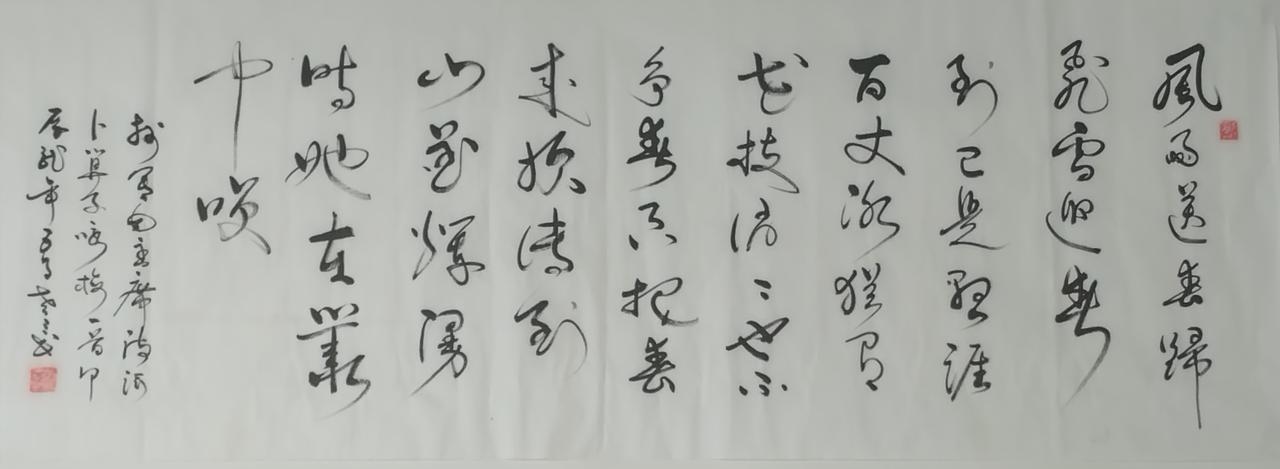 風雨送春歸
飛雪迎春
到已是懸涯
百丈冰猶有
花枝俏〻也不
争春只把春
来报待到
山花爛漫
時她在叢
中咲
抄寫毛主席詩詞
卜算子咏梅一首
辰龍年